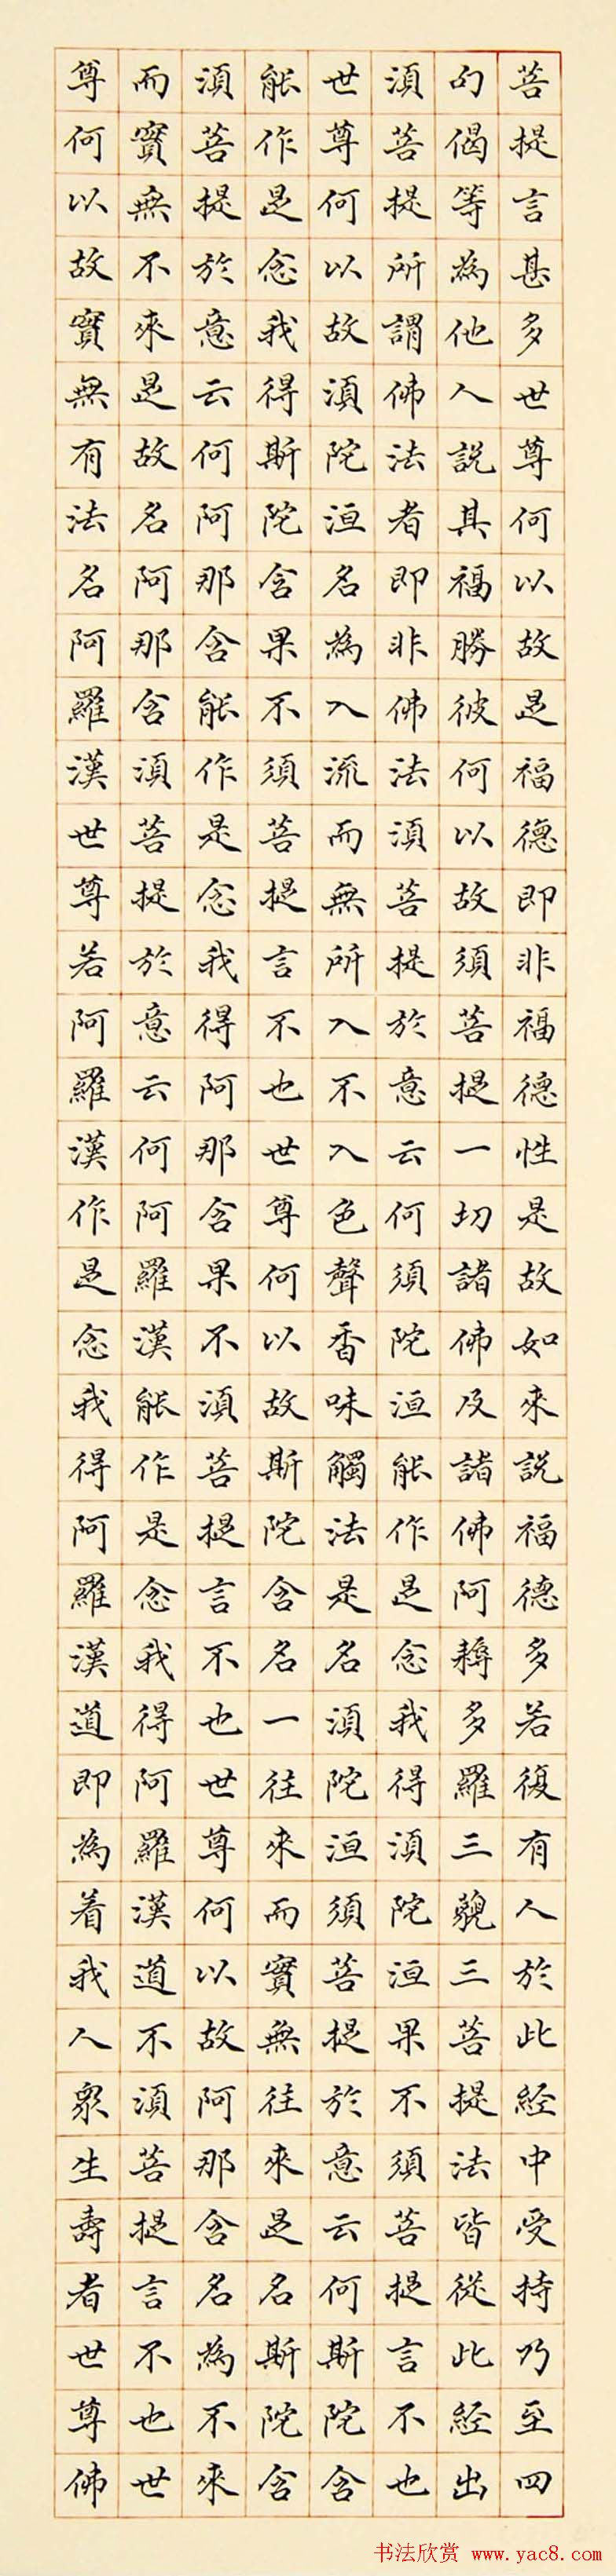 菩提言甚多世尊何以故是福德即非福德性是故如來說福德多若復有人於此經中受持乃至四
句偈等為他人說其福勝彼何以故須菩提一切諸佛及諸佛阿耨多羅三藐三菩提法皆從此經出
須菩提所謂佛法者即非佛法須菩提於意云何須陀洹能作是念我得須陀洹果不須菩提言不也
世尊何以故須陀洹名為入流而無所入不入色聲香味觸法是名須陀洹須菩提於意云何斯陀含
能作是念我得斯陀含果不須菩提言不也世尊何以故斯陀含名一往來而實無往來是名斯陀含
須菩提於意云何阿那含能作是念我得阿那含果不須菩提言不也世尊何以故阿那含名為不來
而實無不來是故名阿那含須菩提於意云何阿羅漢能作是念我得阿羅漢道不須菩提言不也世
尊何以故實無有法名阿羅漢世尊若阿羅漢作是念我得阿羅漢道即為着我人眾生壽者世尊佛
书法欣赏 www.yac8.com